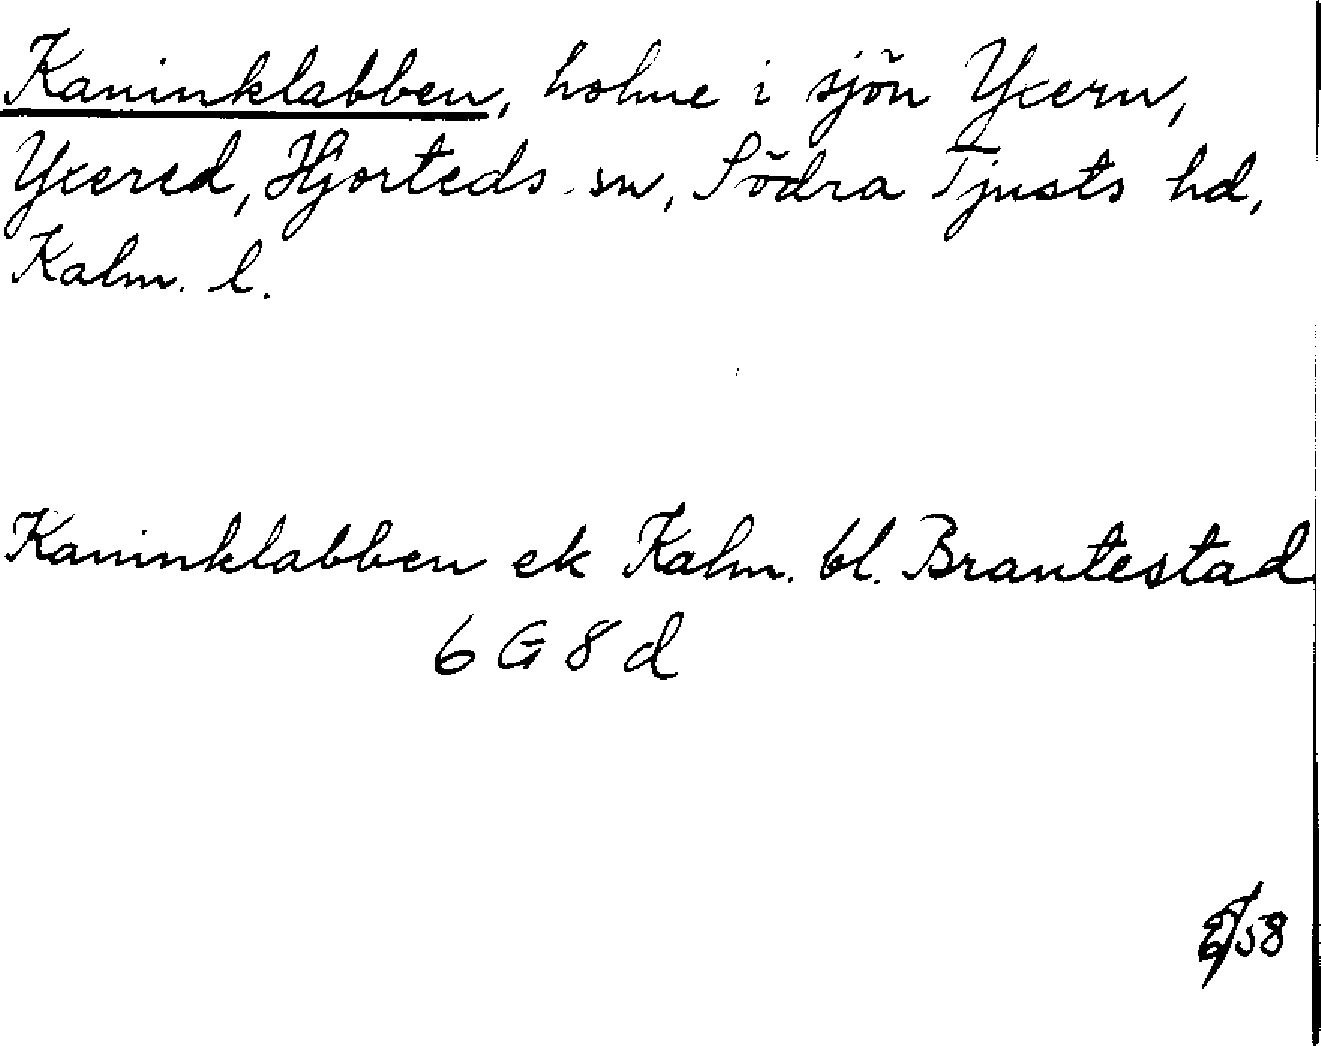 Kaninklabben, holme i sjön Yxern,
Yxered, Hjorteds sn, Södra Tjusts hd,
Kalm. l.
Kaninklabben ek Kalm. bl. Brantestad
6 G 8 d
58